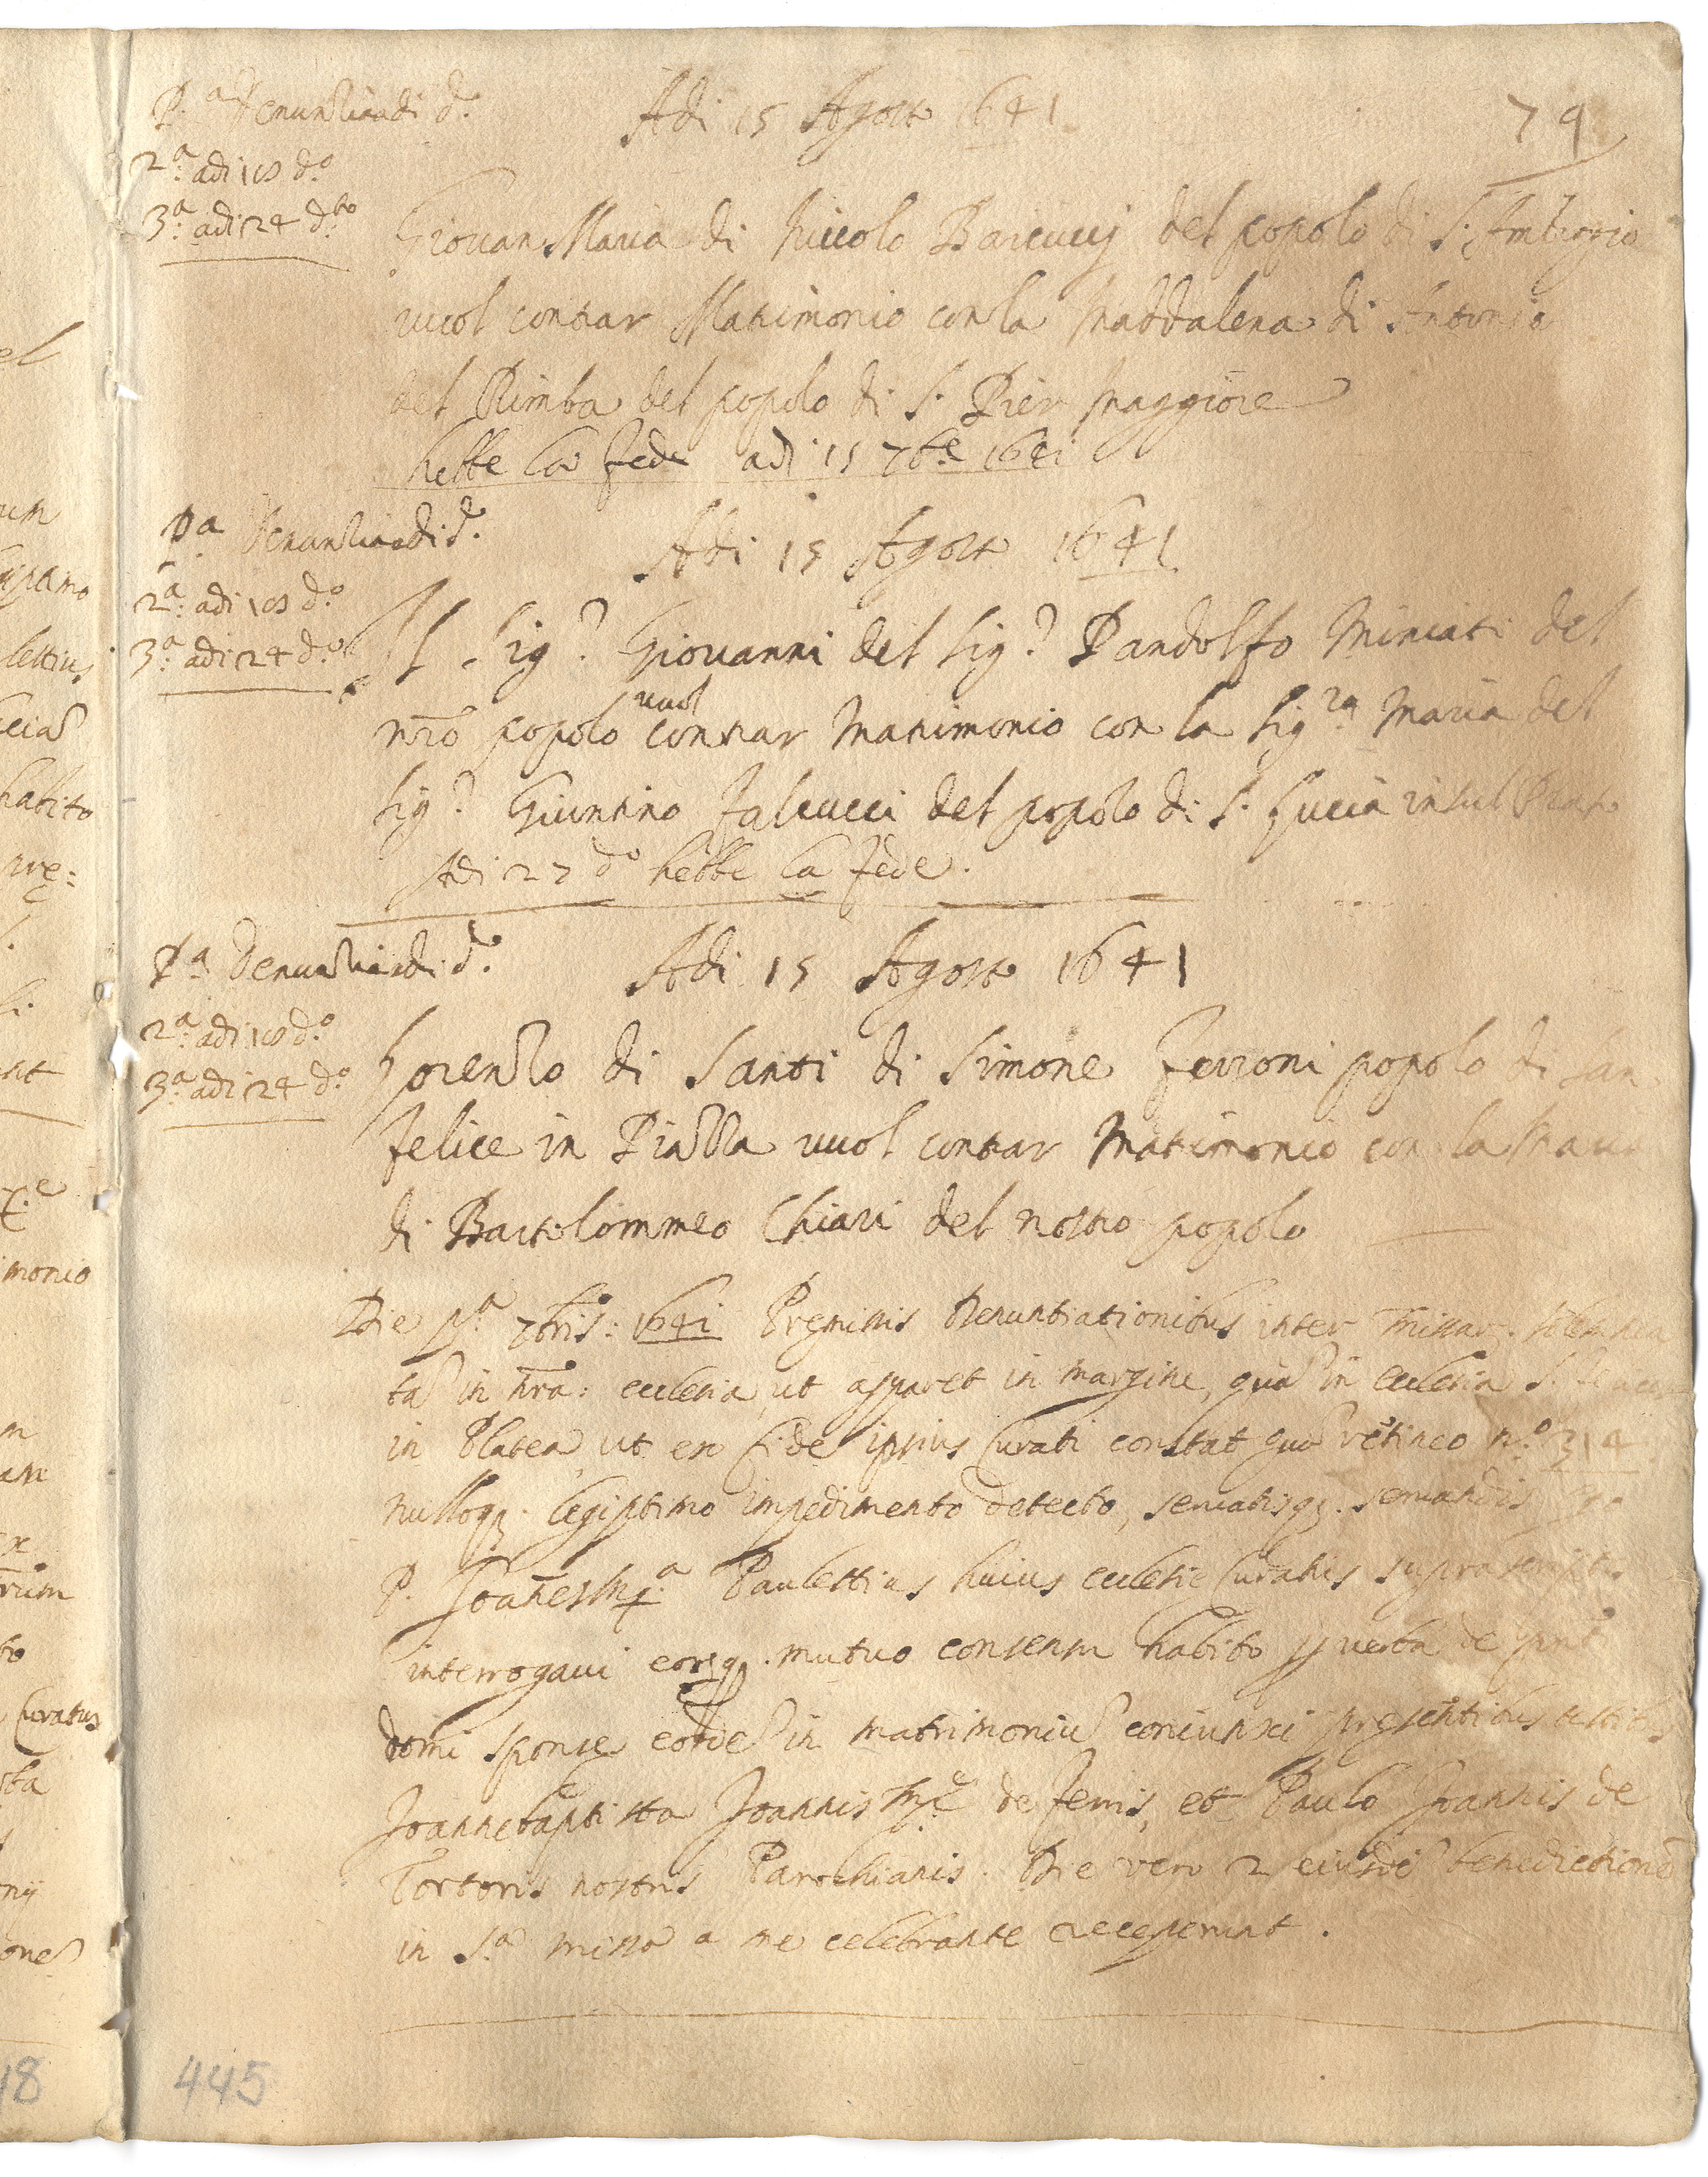 79
P.a Denunzia adi d.o
Adi 15 Agosto 1641
2.a adi 18 d.o
3.a adi 24 d.to
Giovan Maria di Niccolo Barcucci del popolo di S. Ambrogio
vuol contrar Matrimonio con la Maddalena di Antonio
del Rimba del popolo di S. Pier Maggiore
hebbe la fede adi 15 7bre 1641
P.a Denunzia adi d.o
Adi 15 Agosto 1641
2.a adi 18 d.o
3.a adi 24 d.o
Il Sig.r Giovanni del Sig.r Pandolfo Miniati del
nro popolo vuol contrar Matrimonio con la Sig.ra Maria del
Sig.r Giuntino Falcucci del popolo di S. Lucia in sul Prato
Adi 27 d.o hebbe la fede.
P.a Denunzia adi d.o
Adi 15 Agosto 1641
2.a adi 18 d.o
3.a adi 24 d.o
Lorenzo di Santi di Simone Ferroni popolo di San
Felice in Piazza vuol contrar Matrimonio con la Maria
di Bartolommeo Chiari del nostro popolo
Die p.a 7bris: 1641 Premissis Denuntiationibus inter missar.
in nra: ecclesia, ut apparet in margine, in ecclesia S.
in Platea ut ex fide ipsius Curati constat retineo n.o 314
nulloq. legiptimo impedimento detecto, servatisq. servandis
P. Joannes M.a Paulettius huius ecclesie Curatus
interrogavi eorq. mutuo consensu habito p verba de
domi sponse eosde in matrimoniu coniunxi presentibus testibus
Joannebaptista Joannis de Ferris, et Paulo Joannis de
Tortoris nostris Parochianis. Die vero 2 eiusde benedictione
in S.a missa a me celebrante receperunt.
445